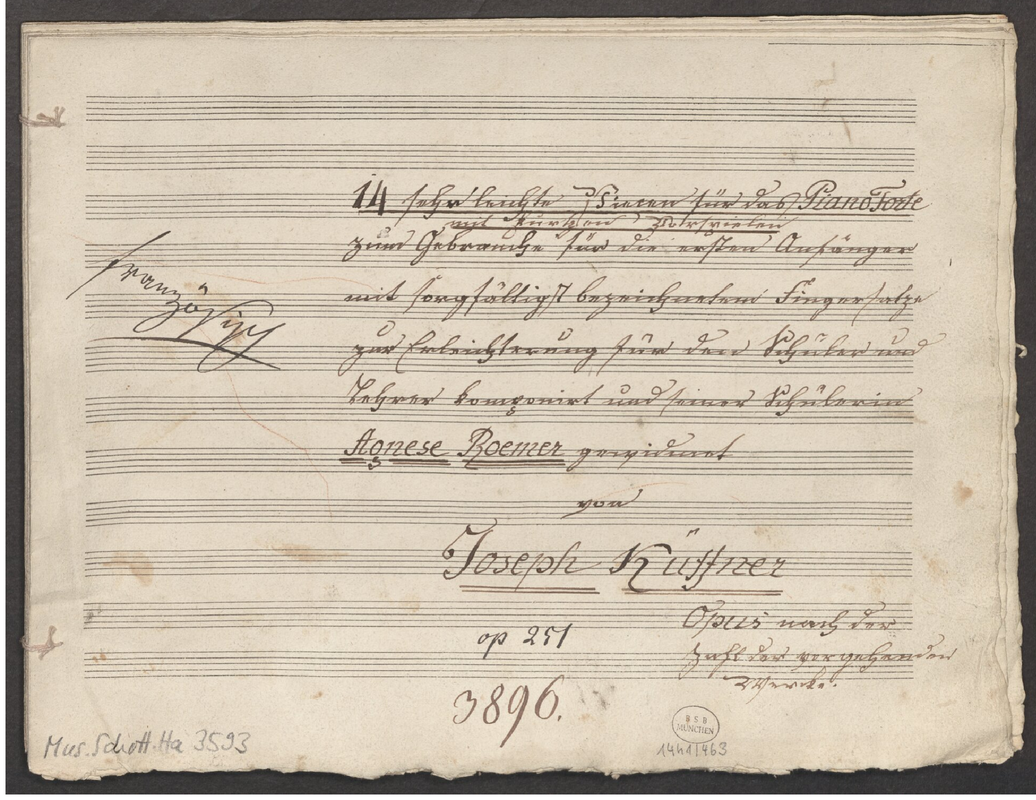 14 sehr leichte Piecen für das Piano Forte
mit kurzen Vorspielen
zum Gebrauche für die ersten Anfänger
mit sorgfältigst bezeichnetem Fingersatze
zur Erleichterung für den Schüler und
Lehrer komponirt und seiner Schülerin
Agnese Roemer gewidmet
von
Joseph Küffner
Französisch
op 251
Opus nach der
Zahl der vorgehenden
Werke.
3896.
Mus. Schott. Ha 3593
BSB
MÜNCHEN
1441/463